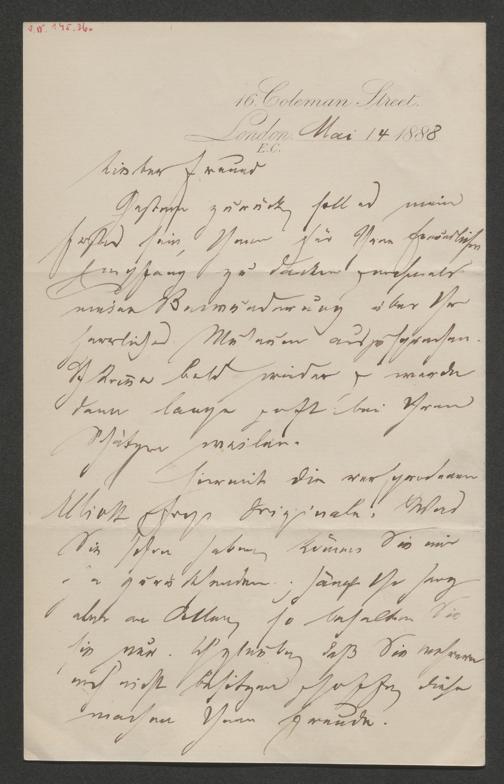 16, Coleman Street.
London Mai 14 1888
E.C.
Lieber Freund
Gestern zurück, soll es mein
Erstes sein, Ihnen für Ihren freundlichen
Empfang zu danken & nochmals
meiner Bewunderung über Ihr
herrliches Museum auszusprechen.
Ich komme bald wieder & werde
dann lange & oft bei Ihren
Schätzen weilen.
Hiermit die versprochenen
Elliott & Frys Originale. Was
Sie schon haben, können Sie mir
ja zurücksenden; hängt Ihr Herz
aber an Allem, so behalten Sie
sie nur. Ich glaube, daß Sie mehrere
noch nicht besitzen & hoffe, diese
machen Ihnen Freude.